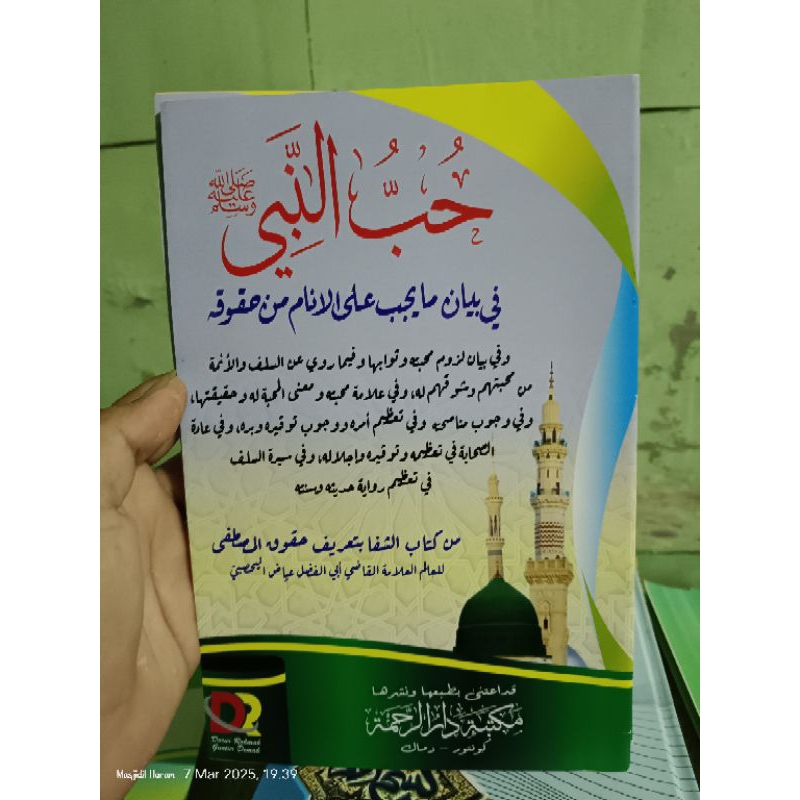 حُبُّ النَّبِيِّ
صلى الله عليه وسلم
في بيان ما يجب على الانام من حقوقه
وفي بيان لزوم محبته وثوابها وفيما روي عن السلف والأئمة
من محبتهم وشوقهم له، وفي علامة محبته ومعنى المحبة له وحقيقتها،
وفي وجوب مناصحته وفي تعظيم أمره ووجوب توقيره وبره، وفي عادة
الصحابة في تعظيمه وتوقيره واجلاله، وفي سيرة السلف
في تعظيم رواية حديثه وسنته
من كتاب الشفا بتعريف حقوق المصطفى
للعالم العلامة القاضي أبي الفضل عياض اليحصبي
قد اعتنى بطبعها ونشرها
مكتبة دار الرحمة
كونتور - دماك
DR
Darur Rohmah
Guntur Demak
Masjidil Haram 7 Mar 2025, 19.39